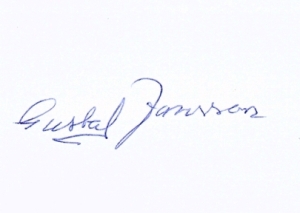 Gustaf Jansson